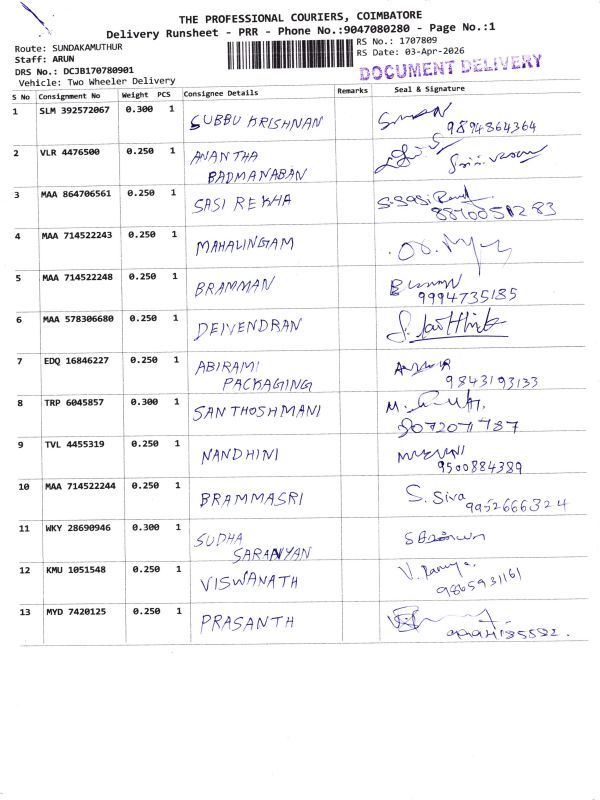 THE PROFESSIONAL COURIERS, COIMBATORE
Delivery Runsheet - PRR - Phone No.:9047080280 - Page No.:1
Route: SUNDAKAMUTHUR
RS No.: 1707809
Staff: ARUN
RS Date: 03-Apr-2026
DRS No.: DCJB170780901
DOCUMENT DELIVERY
Vehicle: Two Wheeler Delivery
S No Consignment No Weight PCS Consignee Details Remarks Seal & Signature
1 SLM 392572067 0.300 1 SUBBU KRISHNAN
9894864364
2 VLR 4476500 0.250 1 ANANTHA
BADMANABAN
3 MAA 864706561 0.250 1 SASI REKHA
4 MAA 714522243 0.250 1 MAHALINGAM
5 MAA 714522248 0.250 1 BRAMMAN
9994735185
6 MAA 578306680 0.250 1 DEIVENDRAN
7 EDQ 16846227 0.250 1 ABIRAMI
PACKAGING 9843193133
8 TRP 6045857 0.300 1 SANTHOSHMANI
9 TVL 4455319 0.250 1 NANDHINI
9500884389
10 MAA 714522244 0.250 1 BRAMMASRI S. Siva
9952666324
11 WKY 28690946 0.300 1 SUDHA
SARANYAN
12 KMU 1051548 0.250 1 VISWANATH
9865931161
13 MYD 7420125 0.250 1 PRASANTH